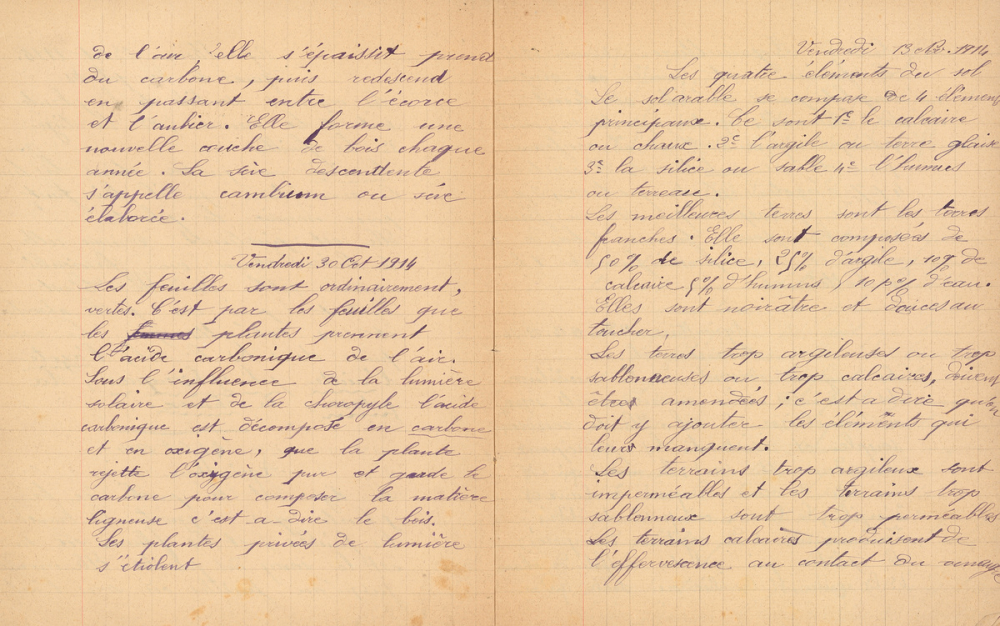 de l'air, elle s'épaissit prend
du carbone, puis redescend
en passant entre l'écorce
et l'aubier. Elle forme une
nouvelle couche de bois chaque
année. La sève descendente
s'appelle cambium ou sève
élaborée.
Vendredi 30 Oct 1914
Les feuilles sont ordinairement,
vertes. C'est par les feuilles que
les plantes prennent
l'acide carbonique de l'air.
Sous l'influence de la lumière
solaire et de la chloropyle l'acide
carbonique est décomposé en carbone
et en oxigène, que la plante
rejette l'oxygène pur et garde le
carbone pour composer la matière
ligneuse c'est a-dire le bois.
Les plantes privées de lumière
s'étiolent
Vendredi 13 1914
Les quatre éléments du sol
Le sol arable se compose de 4 élémen
principaux. Ce sont 1e le calcaire
ou chaux. 2e l'argile ou terre glaise
3e la silice ou sable 4e l'humus
ou terreau.
Les meilleures terres sont les terres
franches. Elle sont composées de
50% de silice, 25% d'argile, 10% de
calcaire 5% d'humus 10 p% d'eau.
Elles sont noirâtre et douces au
toucher.
Les terres trop argileuses ou trop
sablonneuses ou trop calcaires, doivent
êtres amendées; c'est a dire qu'on
doit y ajouter les éléments qui
leurs manquent.
Les terrains trop argileux sont
imperméables et les terrains trop
sablonneux sont trop perméables
Les terrains calcaires produisent de
l'effervescence au contact du vinaigre